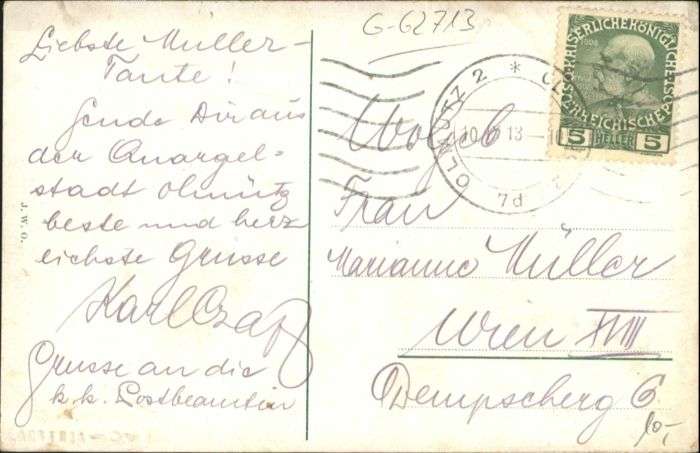 G-62713
Liebste Müller-
Tante!
Sende Dir aus
der Quargel-
stadt Olmütz
beste und herz
lichste Grüsse
Karl Czap
Grüsse an die
k.k. Postbeamtin
J. W. O.
KAISERLICHE KÖNIGLICHE
ÖSTERREICHISCHE POST
5 HELLER 5
OLMÜTZ 2 *
10 13
7d
Wolgeb
Frau
Marianne Müller
Wien XVIII
Dempscherg 6
10,-